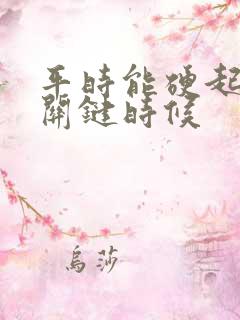 平時能硬起
關鍵時候
烏莎